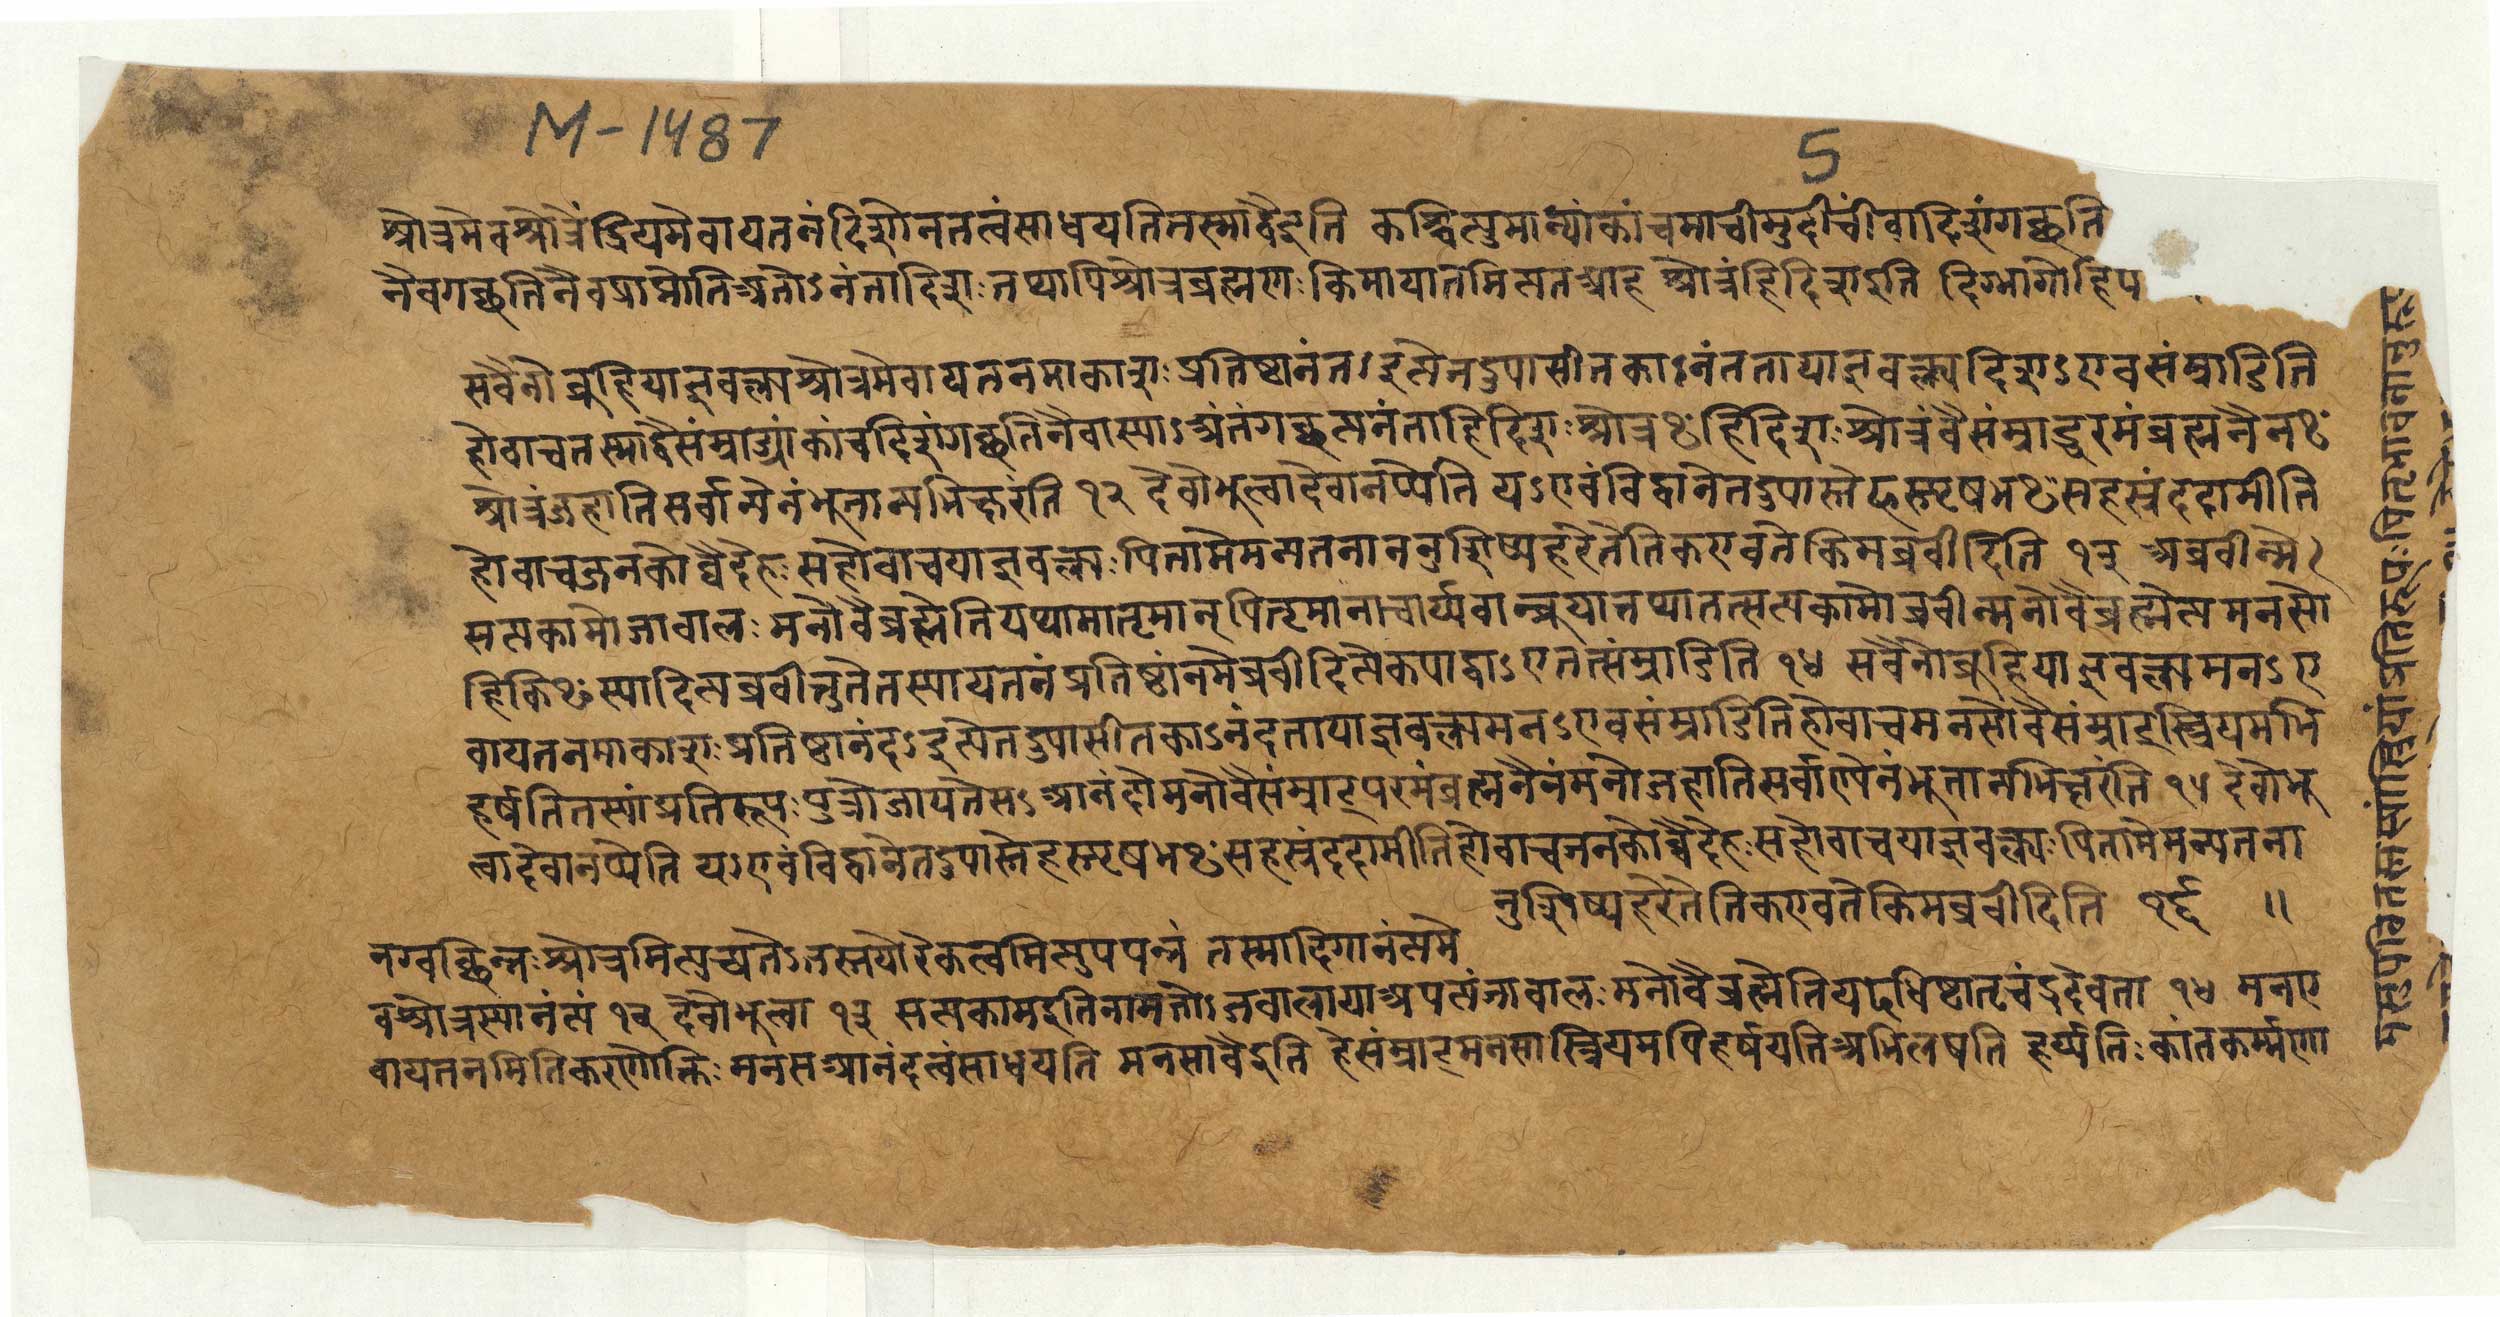 M-1487
5
श्रोत्रमेवश्रोत्रेंद्रियमेवायतनं दिशोनंतत्वंसाधयतितस्माद्वैइति कश्चित्पुमान्यांकांचप्राचीमुदीचींवादिशंगच्छति
नैवगच्छतिनैवप्राप्नोतिअतोऽनंतादिशः तथापिश्रोत्रब्रह्मणः किमायातमित्यतआह श्रोत्रंहिदिशइति दिग्भागोहिप
सवैनोब्रूहियाज्ञवल्क्यश्रोत्रमेवायतनमाकाशः प्रतिष्टानंतऽइत्येनदुपासीतकाऽनंततायाज्ञवल्क्यदिशऽएवसंम्राडिति
होवाचतस्माद्वैसंम्राड्यांकांचदिशंगच्छतिनैवास्याऽअंतंगच्छत्यनंताहिदिशः श्रोत्रꣳहिदिशः श्रोत्रंवैसंम्राट्परमंब्रह्मनैनꣳ
श्रोत्रंजहातिसर्वाण्येनंभूतान्यभिक्षरंति १२ देवोभूत्वादेवानप्येति यऽएवंविद्वानेतदुपास्तेहस्त्यृषभꣳसहस्रंददामीति
होवाचजनकोव्वैदेहः सहोवाचयाज्ञवल्क्यः पितामेमन्यतनाननुशिष्यहरेतेतिकएवतेकिमब्रवीदिति १३ अब्रवीन्मे
सत्यकामोजाबालः मनोवैब्रह्मेतियथामातृमान्पितृमानाचार्य्यवान्ब्रूयात्तथातत्सत्यकामोब्रवीन्मनोवैब्रह्मेत्यमनसो
हिकिꣳस्यादित्यब्रवीत्तुतेतस्यायतनंप्रतिष्टांनमेब्रवीदित्येकपाद्वाऽएतत्संम्राडिति १४ सवैनोब्रूहियाज्ञवल्क्यमनऽए
वायतनमाकाशः प्रतिष्टानंदऽइत्येतदुपासीतकाऽनंदतायाज्ञवल्क्यमनऽएवसंम्राडितिहोवाचमनसोवैसंम्राट्स्त्रियमभि
हर्षतितस्यांप्रतिरूपः पुत्रोजायतेसऽआनंदोमनोवैसंम्राट्परमंब्रह्मनैनंमनोजहातिसर्वाण्येनंभूतान्यभिक्षरंति १५ देवोभू
त्वादेवानप्येति यऽएवंविद्वानेतदुपास्तेहस्त्यृषभꣳसहस्रंददामीतिहोवाचजनकोव्वैदेहः सहोवाचयाज्ञवल्क्यः पितामेमन्यतना
नुशिष्यहरेतेतिकएवतेकिमब्रवीदिति १६ ॥
श्रोत्रमित्युच्यतेऽतस्तयोरेकत्वमित्युपपन्नं तस्माद्दिगानंत्यमे
वश्रोत्रस्यानंत्यं १२ देवोभूत्वा १३ सत्यकामइतिनामतोऽजबालायाअपत्यंजाबालः मनोवैब्रह्मेतियदधिष्टातृचंद्रदेवता १४ मनए
वायतनमितिकरणोक्तिः मनसआनंदत्वंसाधयति मनसावैइति हेसंम्राट्मनसास्त्रियमभिहर्षयतिअभिलषति हर्यतिः कांतकर्म्मणा